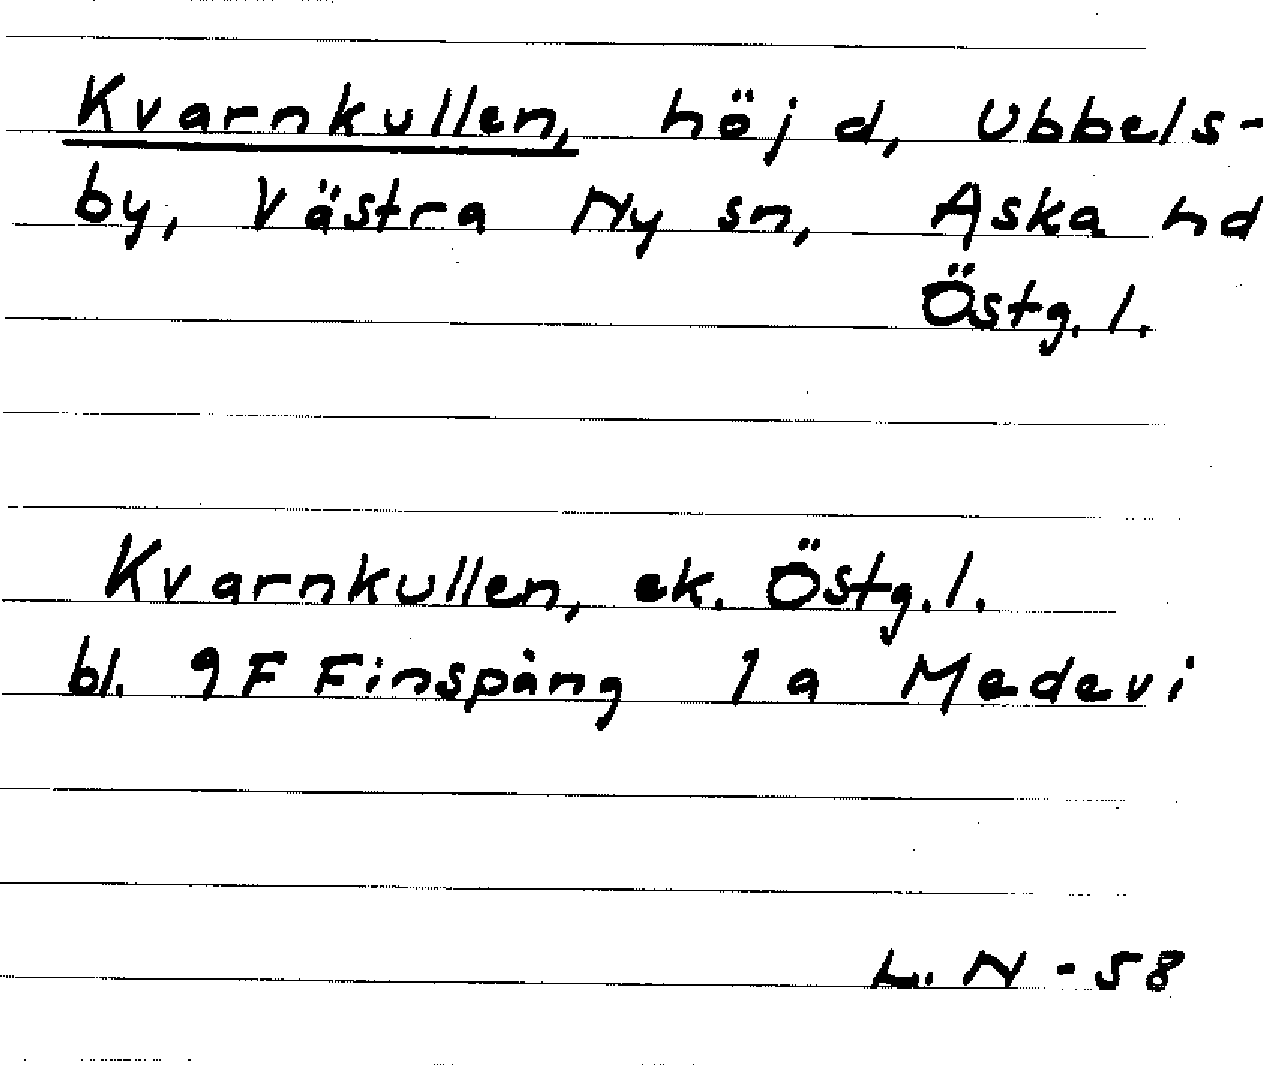 Kvarnkullen, höjd, Ubbels-
by, Västra Ny sn, Aska hd
Östg. l.
Kvarnkullen, ek. Östg. l.
bl. 9F Finspång 1a Medevi
L. N -58